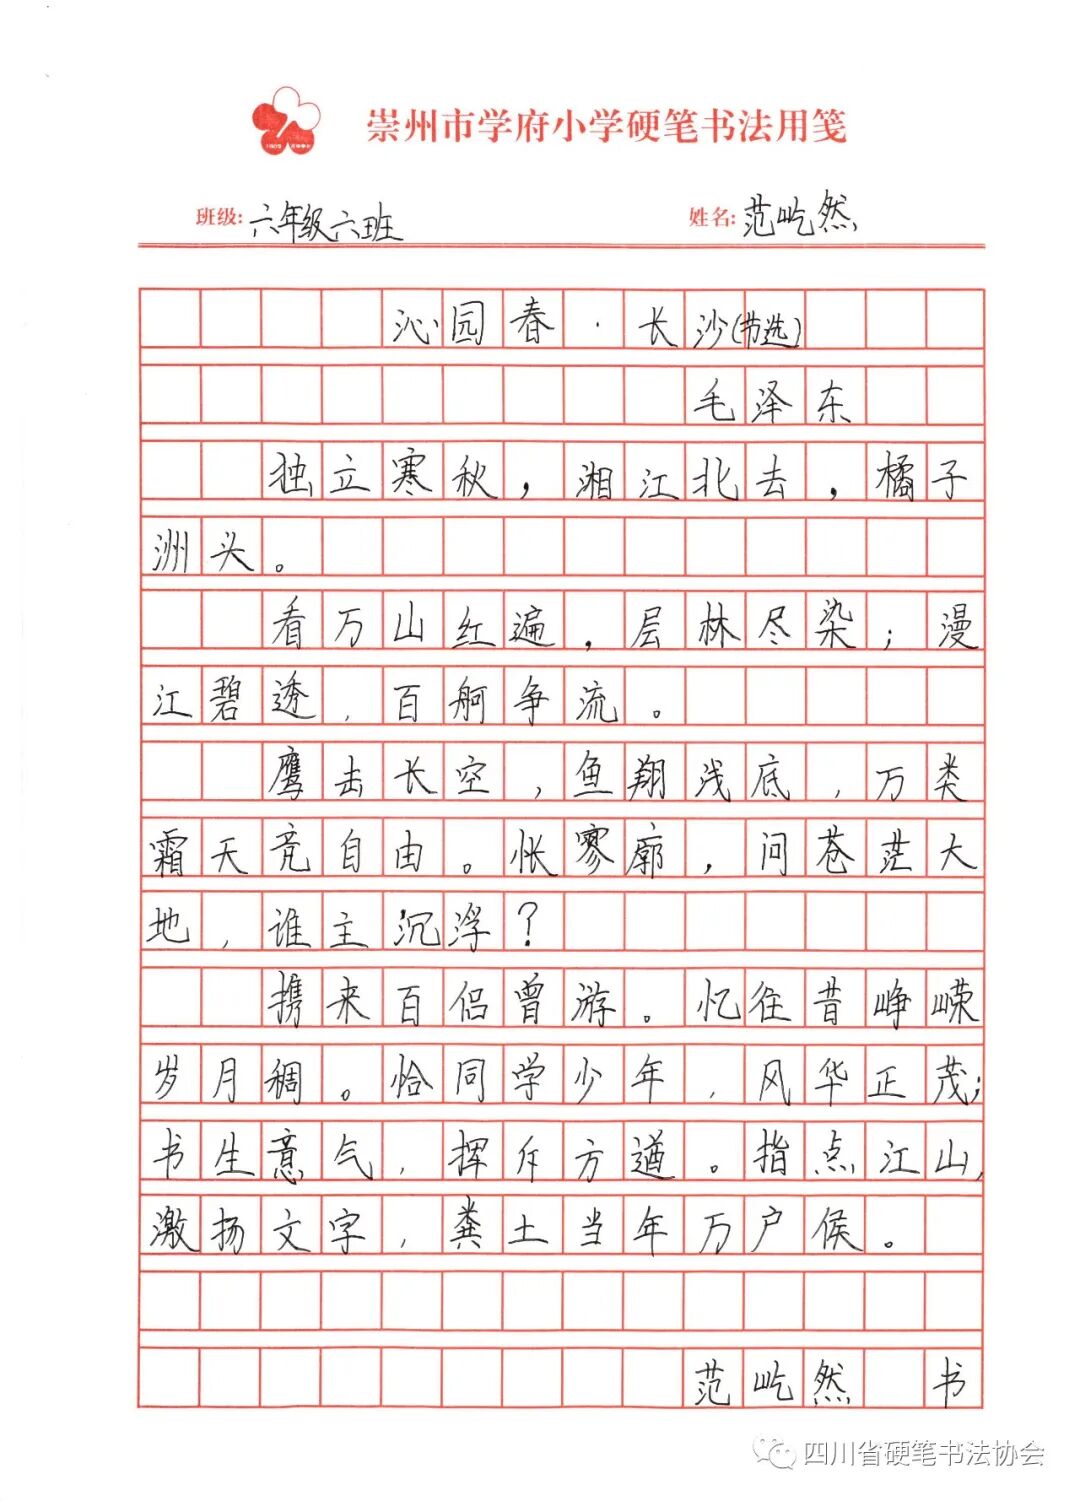 崇州市学府小学硬笔书法用笺
班级:六年级六班 姓名:范屹然
沁园春·长沙(节选)
毛泽东
独立寒秋，湘江北去，橘子
洲头。
看万山红遍，层林尽染；漫
江碧透，百舸争流。
鹰击长空，鱼翔浅底，万类
霜天竞自由。怅寥廓，问苍茫大
地，谁主沉浮？
携来百侣曾游。忆往昔峥嵘
岁月稠。恰同学少年，风华正茂；
书生意气，挥斥方遒。指点江山，
激扬文字，粪土当年万户侯。
范屹然 书
四川省硬笔书法协会